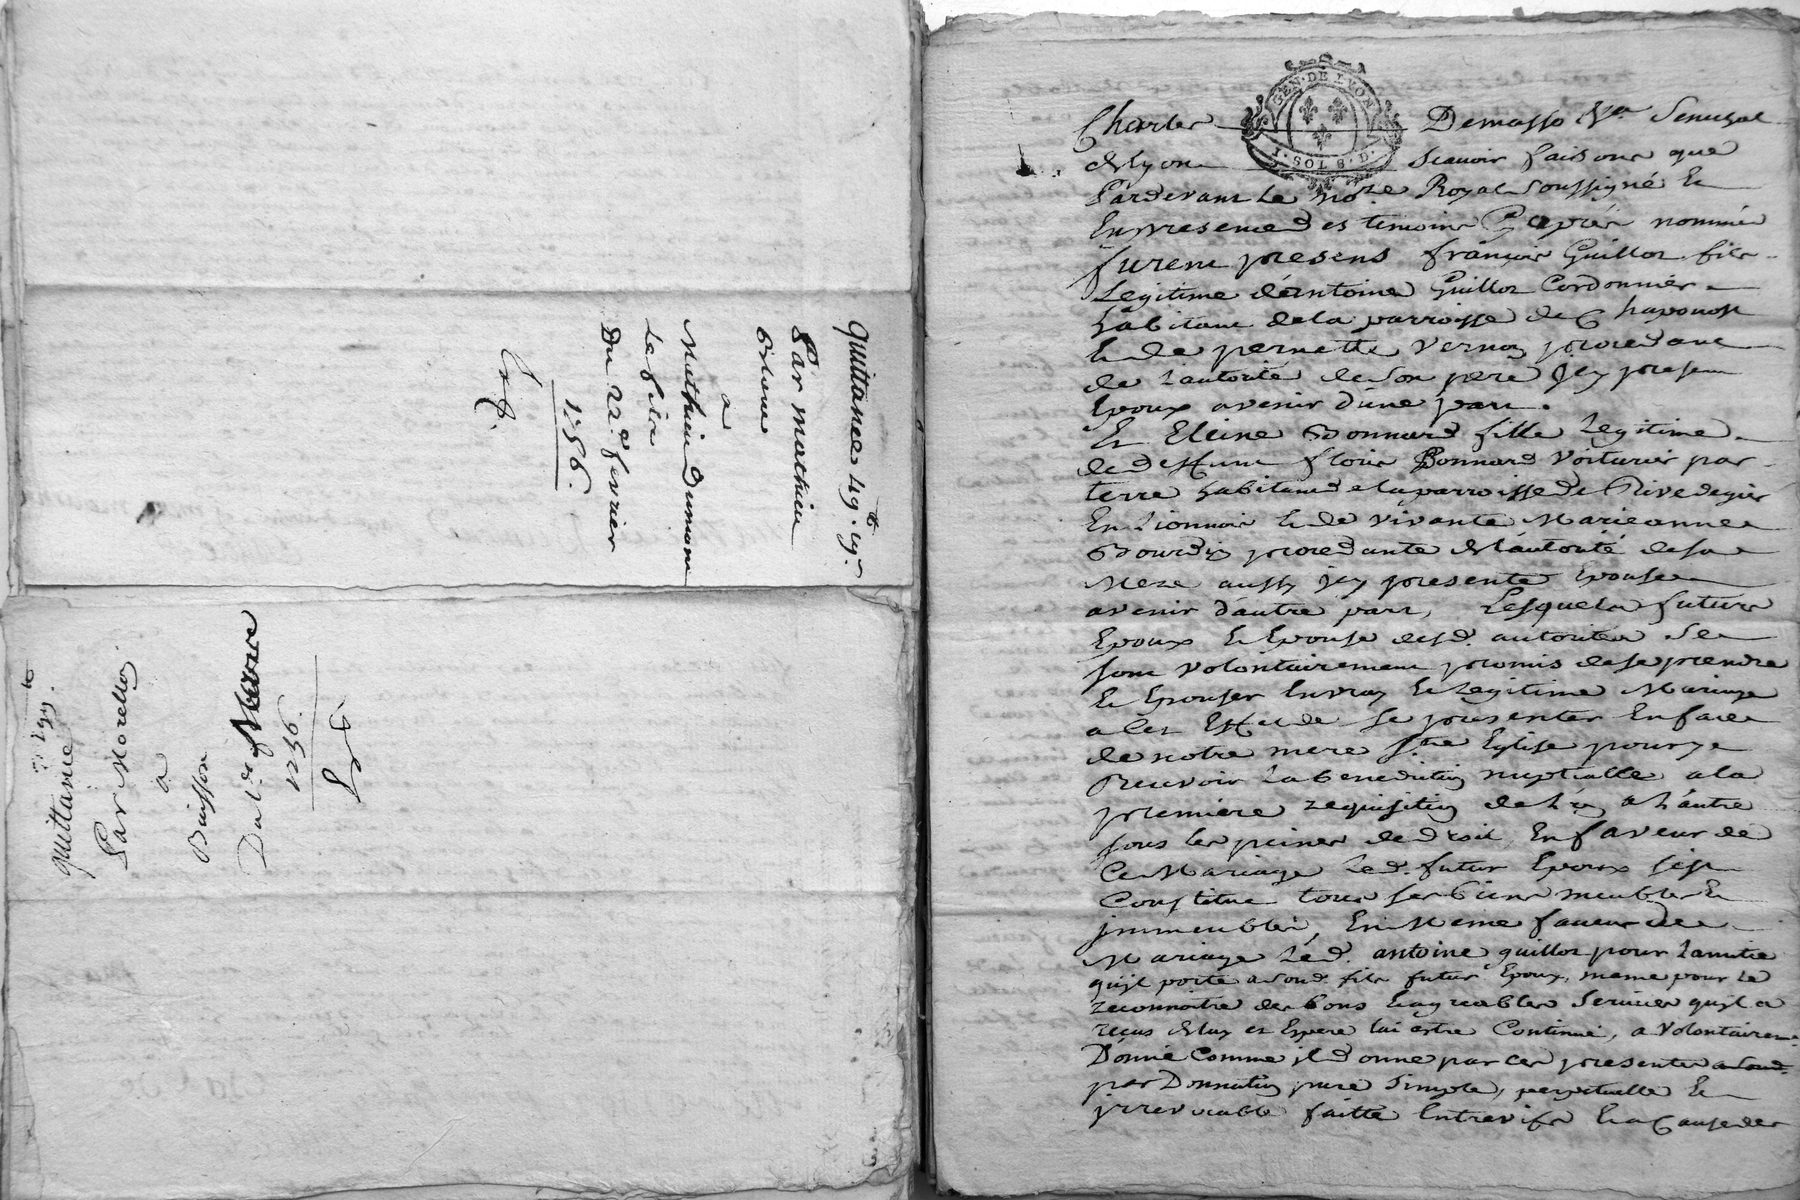 quittance 49.tt 19.s
Par mathieu
Brieme
a
Mathieu dumone
le fils
Du 22.e fevrier
1756.
quittance
7: 199. tt
Par Morellon
a
Buisson
Du 1.r Mars
1756.
GÉN. DE LYON
1. SOL 8. D.
Charles Demasso Sr. Senechal
de lyon Scavoir faisons que
Pardevant Le No.re Royal Soussigné Et
En presence des temoins Cy après nommés
furent presens françois Guillot fils
Legitime d'antoine Guillot Cordonnier
habitant de la parroisse de Chaponost
Et de pernette Vernay procedant
de l'autorité de Son pere Icy present
Epoux avenir d'une part.
Et Eleine Bonnard fille Legitime
de deffunt fleurie Bonnard Voiturier par
terre habitant de la parroisse de Rivedegier
En Lionnois Et de vivante Marieanne
Bourdin procedante de l'autorité de sa
Mere aussy Icy presente Epouse
avenir d'autre part, Lesquels futurs
Epoux Et Epouse desd. autorités Se
sont volontairement promis de se prendre
Et Epouser En vray Et Legitime Mariage
a cet Effet de Se presenter En face
de notre mere S.te Eglise pour y
Recevoir La benediction nuptialle a la
premiere requisition de L'un a L'autre
sous les peines de droit, En faveur de
Ce Mariage Led. futur Epoux s'est
Constitué tous ses biens meubles Et
immeubles, En Meme faveur de
Mariage Led. antoine guillot pour l'amitié
qu'jl porte a sond. fils futur Epoux, meme pour Le
reconnoitre des bons Et agreables Services qu'jl a
reçus de luy et Espere lui estre Continué, a volontairem.t
Donné Comme jl donne par ces presentes a sond.
par Donnation pure Simple, perpetuelle Et
jrrevocable faitte Entrevifs Et a Cause des